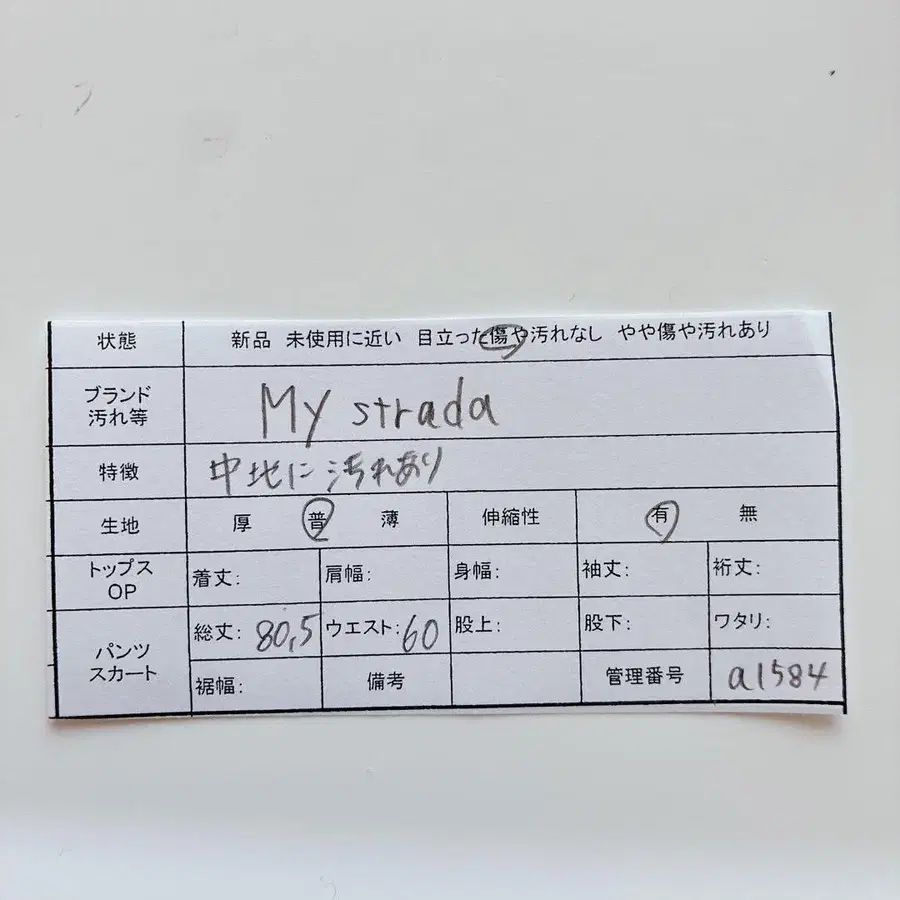 状態 新品 未使用に近い 目立った傷や汚れなし やや傷や汚れあり
ブランド 汚れ等 My strada
特徴 中地に汚れあり
生地 厚 普 薄 伸縮性 有 無
トップス OP 着丈: 肩幅: 身幅: 袖丈: 裄丈:
パンツ スカート 総丈: 80,5 ウエスト: 60 股上: 股下: ワタリ:
裾幅: 備考 管理番号 a1584